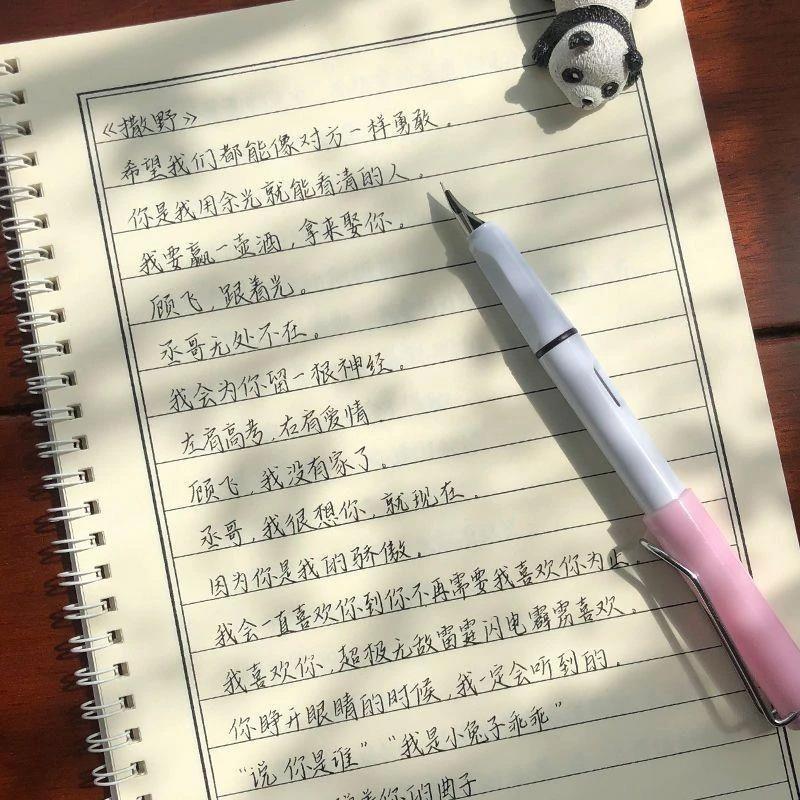 《撒野》
希望我们都能像对方一样勇敢。
你是我用余光就能看清的人。
我要赢一壶酒，拿来娶你。
顾飞，跟着光。
丞哥无处不在。
我会为你留一根神经。
左有高考，右有爱情
顾飞，我没有家了。
丞哥，我很想你，就现在。
因为你是我的骄傲。
我会一直喜欢你到你不再需要我喜欢你为止。
我喜欢你、超极无敌雷霆闪电霹雳喜欢。
你睁开眼睛的时候，我一定会听到的。
“说 你是谁”“我是小兔子乖乖”
着你的曲子